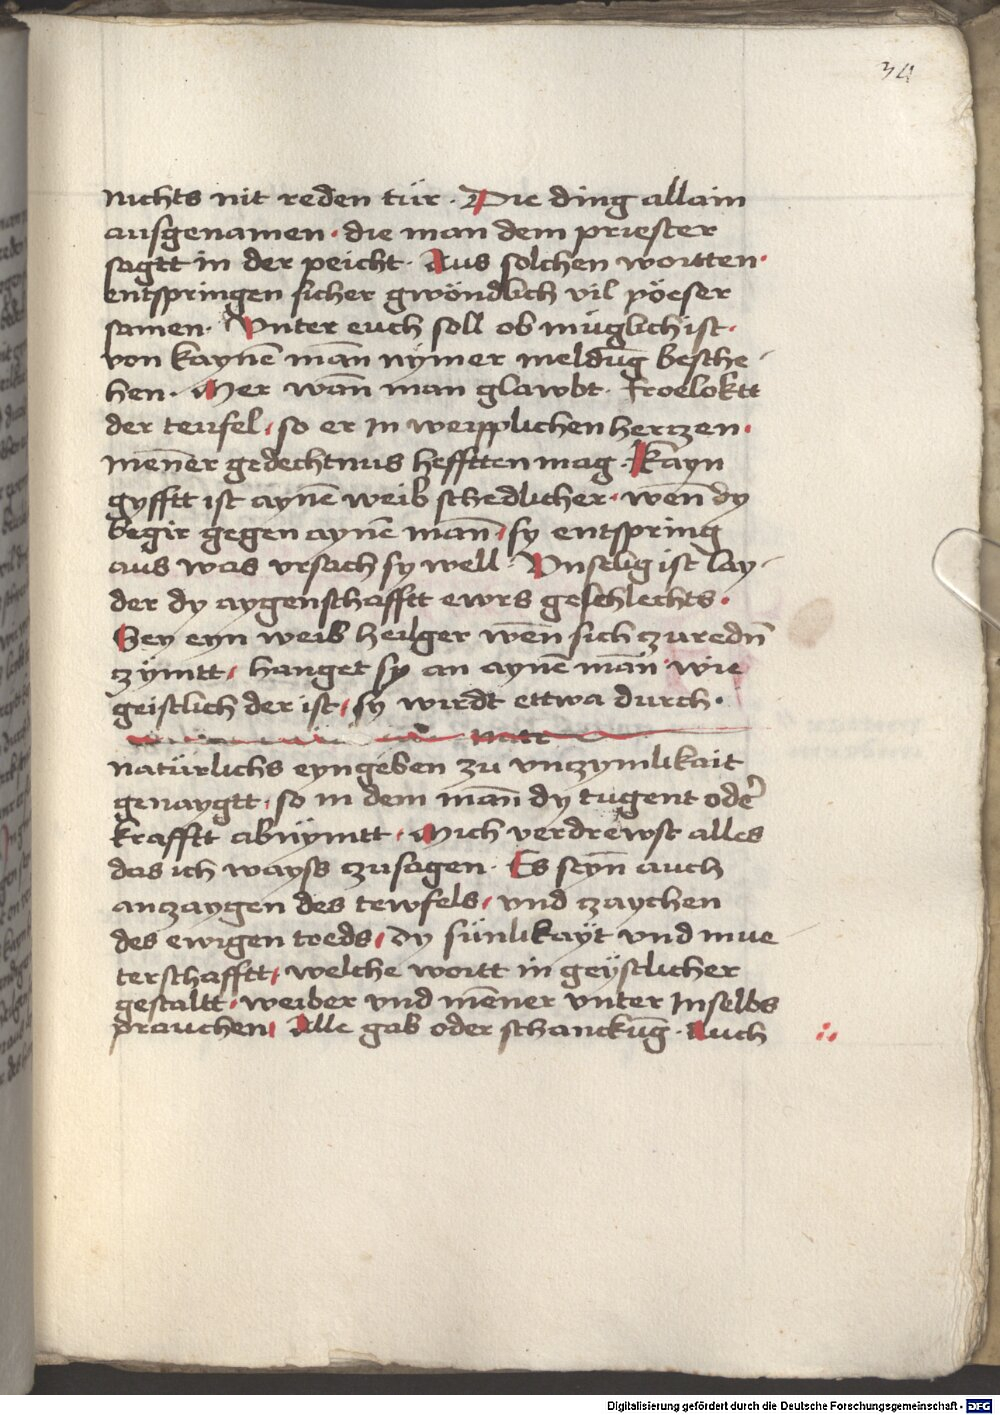 34
nichts nit reden tür · Die ding allain
ausgenamen · die man dem priester
sagtt in der peicht · Aus solchen wortten ·
entspringen sicher gwöndlich vil pöeser
samen · Vnter euch soll ob müglich ist ·
von kaynē man̄ nÿmer meldūg besche-
hen · Mer wan̄ man glawbt · froeloktt
der teufel, so er in weipplichen hertzen ·
men̄er gedechtnus hefftten mag · Kayn
gyfftt ist aynē weib schedlicher · wen̄ dy
begir gegen aynē man̄, sy entspring
aus was vrsach sy well · Vnselig ist lay-
der dy aygenschafftt ewrs geschlechts ·
Sey eyn weib heilger wen̄ sich zu redn̄
zÿmtt, hanget sy an aynē man̄ wie
geistlich der ist, sy wirdt ettwa durch ·
natr
natürlichs eyngeben zu vnzymlikait
genaygtt, so in dem man̄ dy tugent oder̄
krafftt abnÿmtt, Mich verdrewst alles
das ich wayss zu sagen · Es seyn̄ auch
anzaygen des tewfels, vnd zaychen
des ewigen toeds, dy sünlikaÿt vnd mue-
terschafftt, welche wortt in geÿstlicher
gestaltt, weiber vnd men̄er vnter Inselbs
prauchen, Alle gab oder schanckūg · Auch
Digitalisierung gefördert durch die Deutsche Forschungsgemeinschaft - DFG